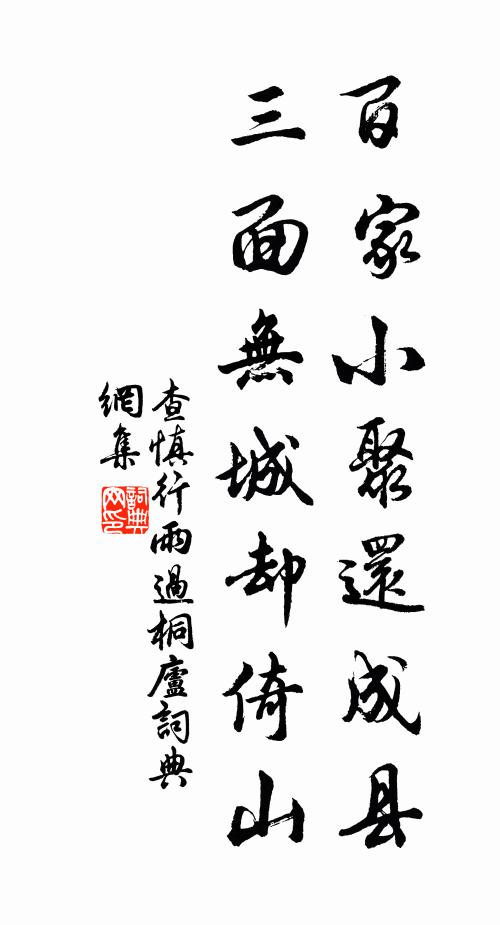 百家小聚還成县
三面無城却倚山
查慎行雨過桐廬詞典
網集
詞典
网印